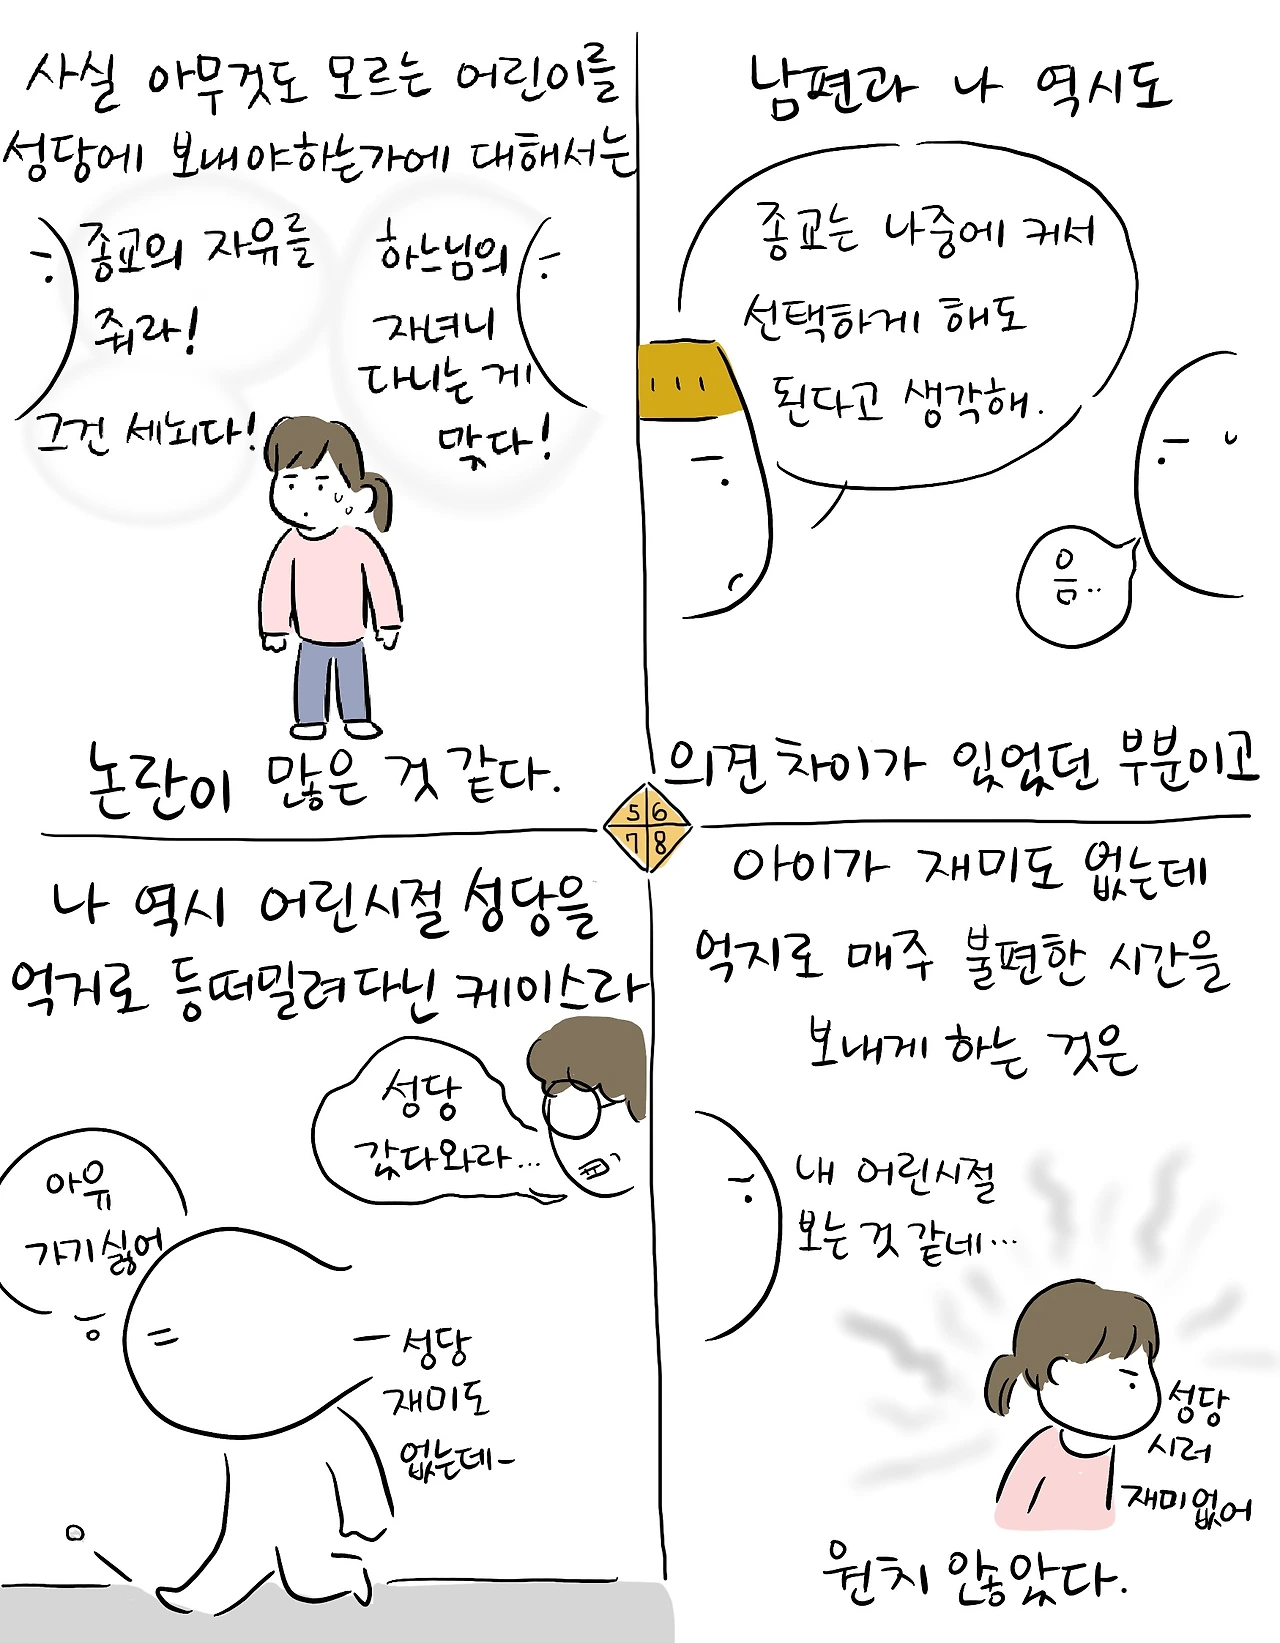 사실 아무것도 모르는 어린이를
성당에 보내야하는가에 대해서는
종교의 자유를
줘라!
그건 세뇌다!
하느님의
자녀니
다니는 게
맞다!
논란이 많은 것 같다.
남편과 나 역시도
종교는 나중에 커서
선택하게 해도
된다고 생각해.
음..
의견차이가 있었던 부분이고
5 6
7 8
나 역시 어린시절 성당을
억지로 등떠밀려다닌 케이스라
성당
갔다와라...
아유
가기싫어
성당
재미도
없는데-
아이가 재미도 없는데
억지로 매주 불편한 시간을
보내게 하는 것은
내 어린시절
보는 것 같네...
성당
시러
재미없어
원치 않았다.